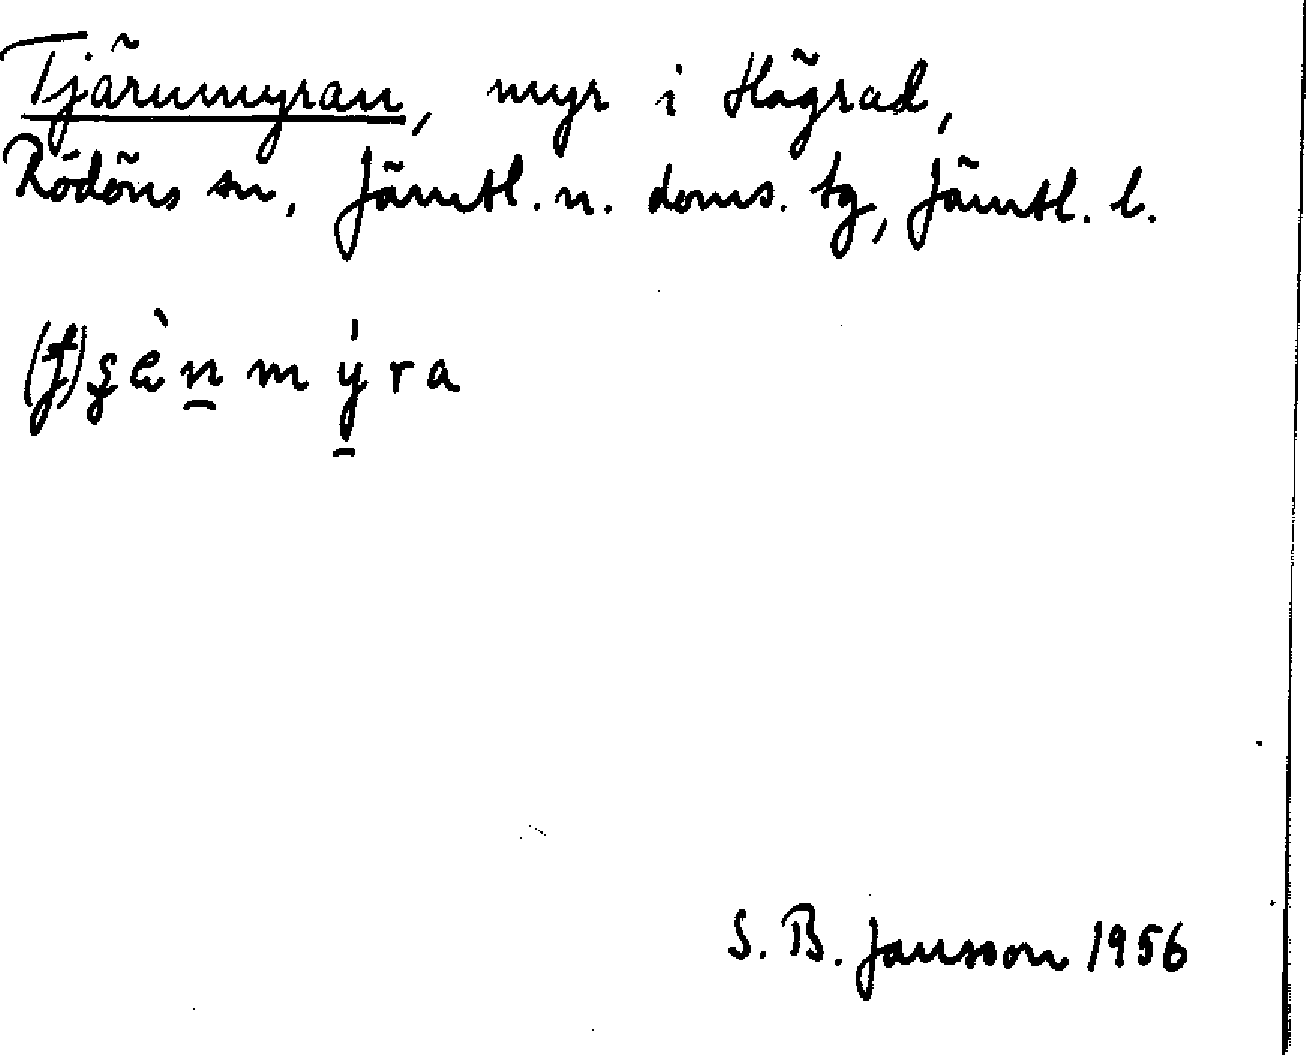 Tjärnmyran, myr i Hägrad,
Rödöns sn, Jämtl. n. doms. tg, Jämtl. l.
S. B. Jansson 1956